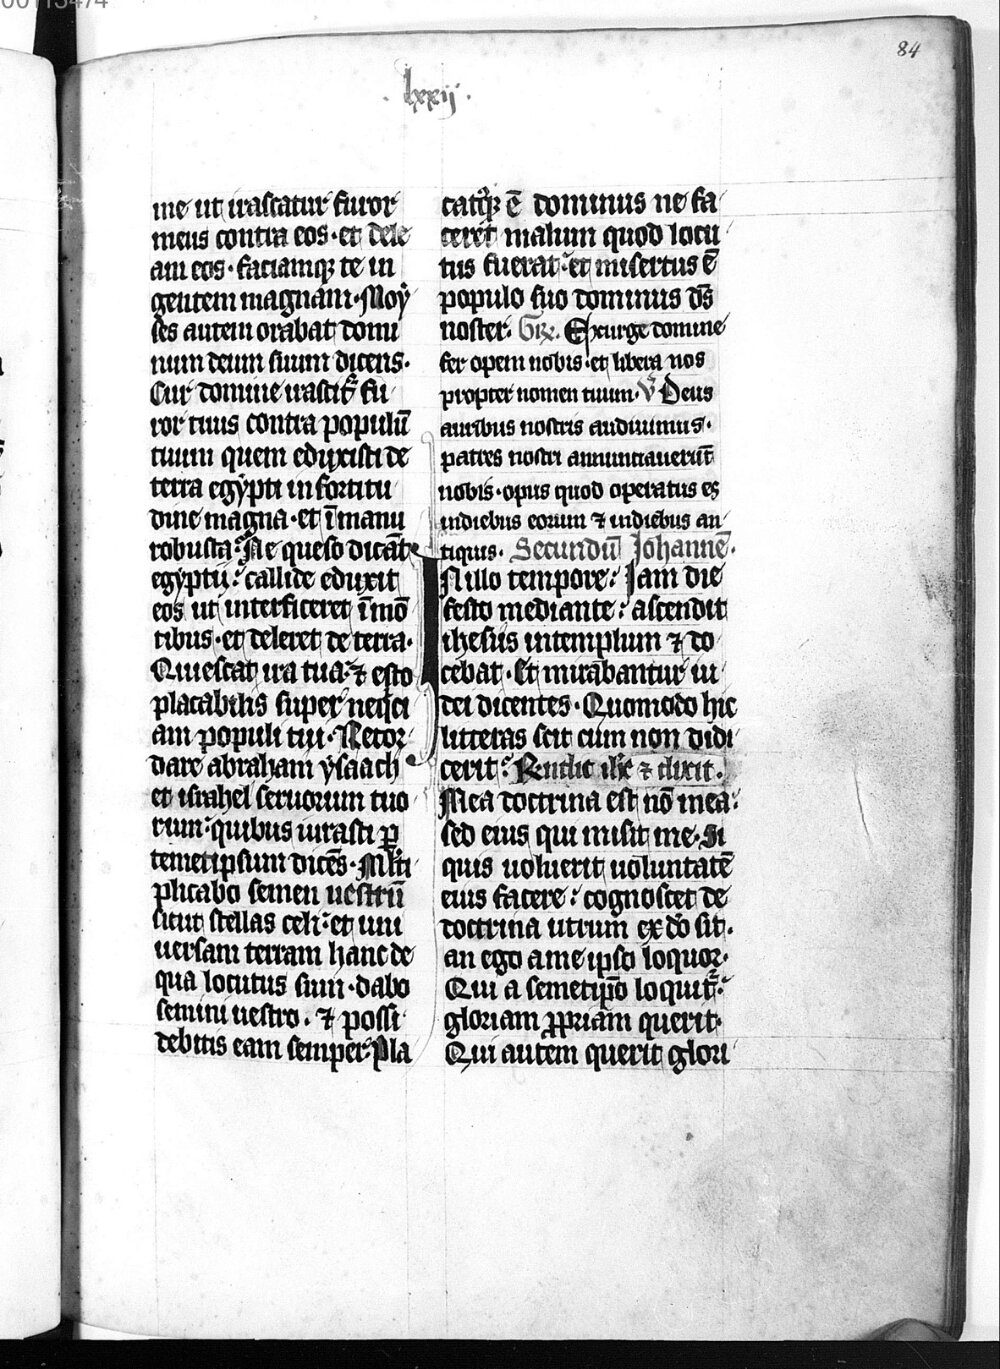 84
· lxxij ·
me ut irascatur furor
meus contra eos · et dele
am eos · faciamq; te in
gentem magnam · Moy
ses autem orabat domi
num deum suum dicens ·
Cur domine irascit̃ fu
ror tuus contra populū
tuum quem eduxisti de
terra egypti in fortitu
dine magna · et ī manu
robusta : Ne queso dicāt
egyptii : callide eduxit
eos ut interficeret ī mō
tibus · et deleret de terra ·
Quiescat ira tua : ⁊ esto
placabilis super neq̇ci
am populi tui · Recor
dare abraham ysaach
et israhel seruorum tuo
rum : quibus iurasti p̱
temetipsum dicēs · Mlti
plicabo semen uestrū
sicut stellas celi : et uni
uersam terram hanc de
qua locutus sum · dabo
semini uestro · ⁊ possi
debitis eam semper · Pla
catq̇; ē dominus ne fa
ceret malum quod locu
tus fuerat : et misertus ē
populo suo dominus ds̄
noster · Gr̄. Exurge domine
fer opem nobis · et libera nos
propter nomen tuum · V̄ Deus
auribus nostris audiuimus ·
patres nostri annuntiauerūt
nobis · opus quod operatus es
in diebus eorum ⁊ in diebus an
tiquis · Secundū Johannē ·
In illo tempore : Jam die
festo mediante : ascendit
ihesus in templum ⁊ do
cebat · Et mirabantur iu
dei dicentes · Quomodo hic
litteras scit cum non didi
cerit : R̄ndit ih̄c ⁊ dixit ·
Mea doctrina est nō mea :
sed eius qui misit me · Si
quis uoluerit uoluntatē
eius facere : cognoscet de
doctrina utrum ex dō sit ·
an ego a me ipso loquor ·
Qui a semetip̄o loquit̃ :
gloriam p̱priam querit ·
Qui autem querit glori